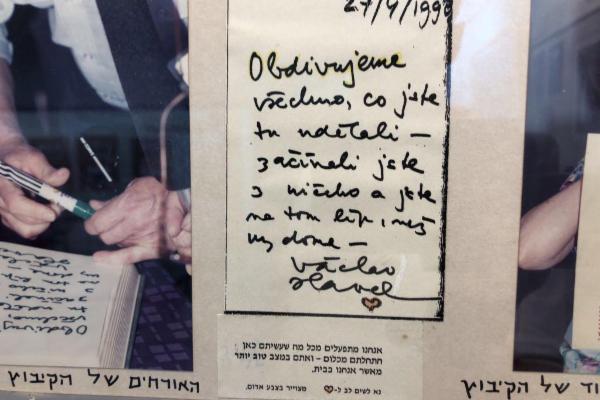 27/4/199
Obdivujeme
všechno, co jste
tu udělali –
začínali jste
z ničeho a jste
na tom líp, než
my doma –
Václav
Havel
אנחנו מתפעלים מכל מה שעשיתם כאן
התחלתם מכלום – ואתם במצב טוב יותר
מאשר אנחנו בבית.
נא לשים לב ל-♥ מצוייר בצבע אדום.
האורחים של הקיבוץ
וד של הקיבוץ